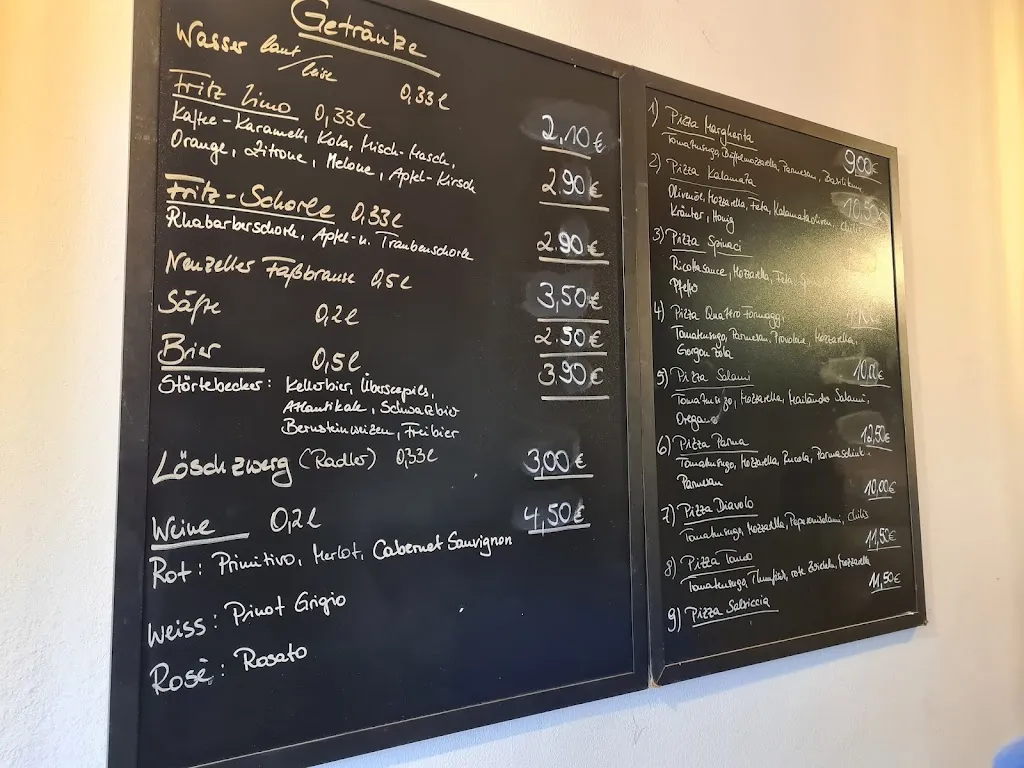 Getränke
Wasser laut / leise 0,33l 2,10€
Fritz Limo 0,33l 2.90€
Kaffee-Karamell, Kola, Misch-Masch,
Orange, Zitrone, Melone, Apfel-Kirsch
Fritz-Schorle 0,33l 2.90€
Rhabarberschorle, Apfel- u. Traubenschorle
Neuzeller Faßbrause 0,5l 3,50€
Säfte 0,2l 2.50€
Bier 0,5l 3.90€
Störtebecker: Kellerbier, Überseepils,
Atlantikale, Schwarzbier
Bernsteinweizen, Freibier
Löschzwerg (Radler) 0,33l 3,00€
Weine 0,2l 4,50€
Rot: Primitivo, Merlot, Cabernet Sauvignon
Weiss: Pinot Grigio
Rosè: Rosato
1) Pizza Margherita 9,00€
Tomatensugo, Büffelmozzarella, Parmesan, Basilikum
2) Pizza Kalamata 10,50€
Olivenöl, Mozzarella, Feta, Kalamataoliven,
Kräuter, Honig
3) Pizza Spinaci
Ricottasauce, Mozzarella, Feta,
Pfeffer
4) Pizza Quattro Formaggi
Tomatensugo, Parmesan, Provolone, Mozzarella,
Gorgonzola
5) Pizza Salami 10,00€
Tomatensugo, Mozzarella, Mailänder Salami,
Oregano
6) Pizza Parma 12,50€
Tomatensugo, Mozzarella, Rucola, Parmaschink.
Parmesan
7) Pizza Diavolo 10,00€
Tomatensugo, Mozzarella, Peperonisalami, Chilis
8) Pizza Tonno 11,50€
Tomatensugo, Thunfisch, rote Zwiebeln, Mozzarella
9) Pizza Salsiccia 11,50€